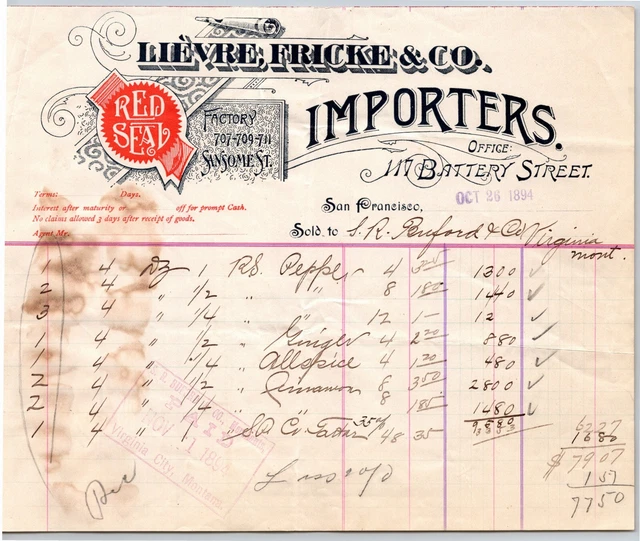 LIÈVRE, FRICKE & CO.
RED SEAL
FACTORY
707-709-711
SANSOME ST.
IMPORTERS.
OFFICE:
117 BATTERY STREET.
Terms: Days.
Interest after maturity or off for prompt Cash.
No claims allowed 3 days after receipt of goods.
Agent Mr.
San Francisco, OCT 26 1894
Sold to S. R. Buford & Co Virginia
mont.
1 4 Dz 1 R.S. Pepper 4 1300
2 4 " 1/2 " " 8 180 1440
3 4 " 1/4 " " 12 1- 12
1 4 " 1/2 " Ginger 4 2 20 880
1 4 " 1/4 " Allspice 4 1 20 480
2 4 " 1/2 " Cinnamon 8 350 2800
2 4 " 1/4 " " 8 185 1480
1 4 " 1 48 35
6227
1680
$ 7907
1 57
7750
PAID
Virginia City, Montana